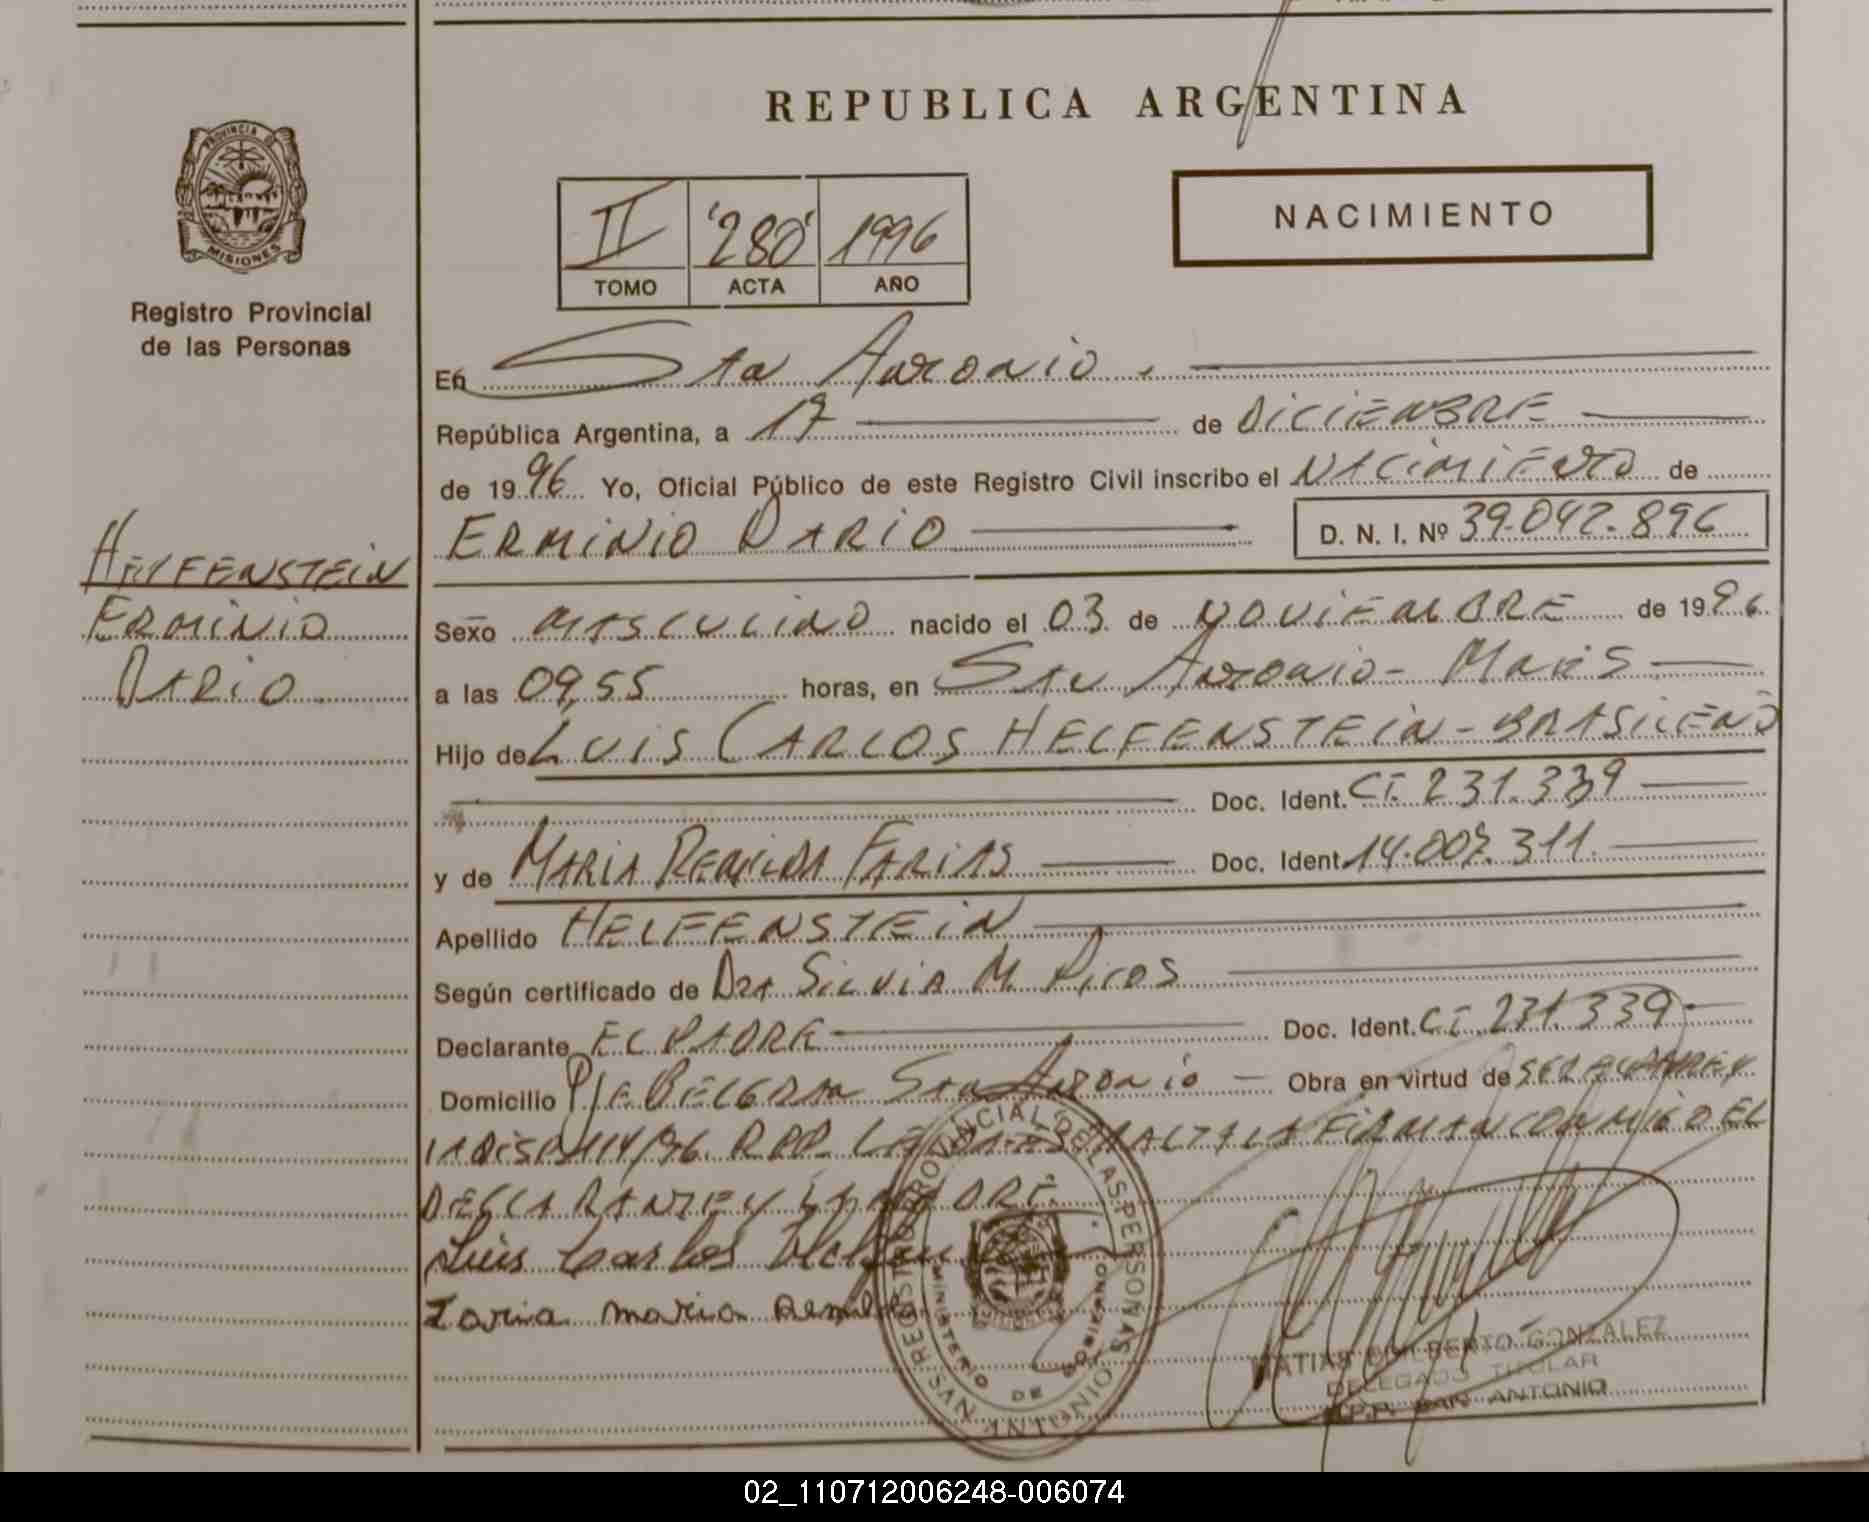 REPUBLICA ARGENTINA
PROVINCIA DE
MISIONES
Registro Provincial
de las Personas
NACIMIENTO
II '280' 1996
TOMO ACTA AÑO
En San Antonio.
República Argentina, a 17 de DICIEMBRE
de 1996 Yo, Oficial Público de este Registro Civil inscribo el NACIMIENTO de
ERMINIO DARIO D. N. I. Nº 39.042.896
HELFENSTEIN
ERMINIO
DARIO
Sexo MASCULINO nacido el 03 de NOVIEMBRE de 1996
a las 09,55 horas, en San Antonio - Mnes
Hijo de LUIS CARLOS HELFENSTEIN - BRASILEÑO
Doc. Ident. CI. 231.339
y de MARIA REMILDA FARIAS Doc. Ident. 14.007.311.
Apellido HELFENSTEIN
Según certificado de Dra SILVIA M. Picos
Declarante EL PADRE Doc. Ident. CI. 231.339
Domicilio Pje BELGRANO San Antonio - Obra en virtud de
FIRMAN CONMIGO EL
DECLARANTE Y LA MADRE.
Luis Carlos
Faria maria Remilda
REGISTRO PROVINCIAL DE LAS PERSONAS
MINISTERIO DE GOBIERNO
SAN ANTONIO
MATIAS GONZALEZ
DELEGADO TITULAR
R.P.P. SAN ANTONIO
02_110712006248-006074